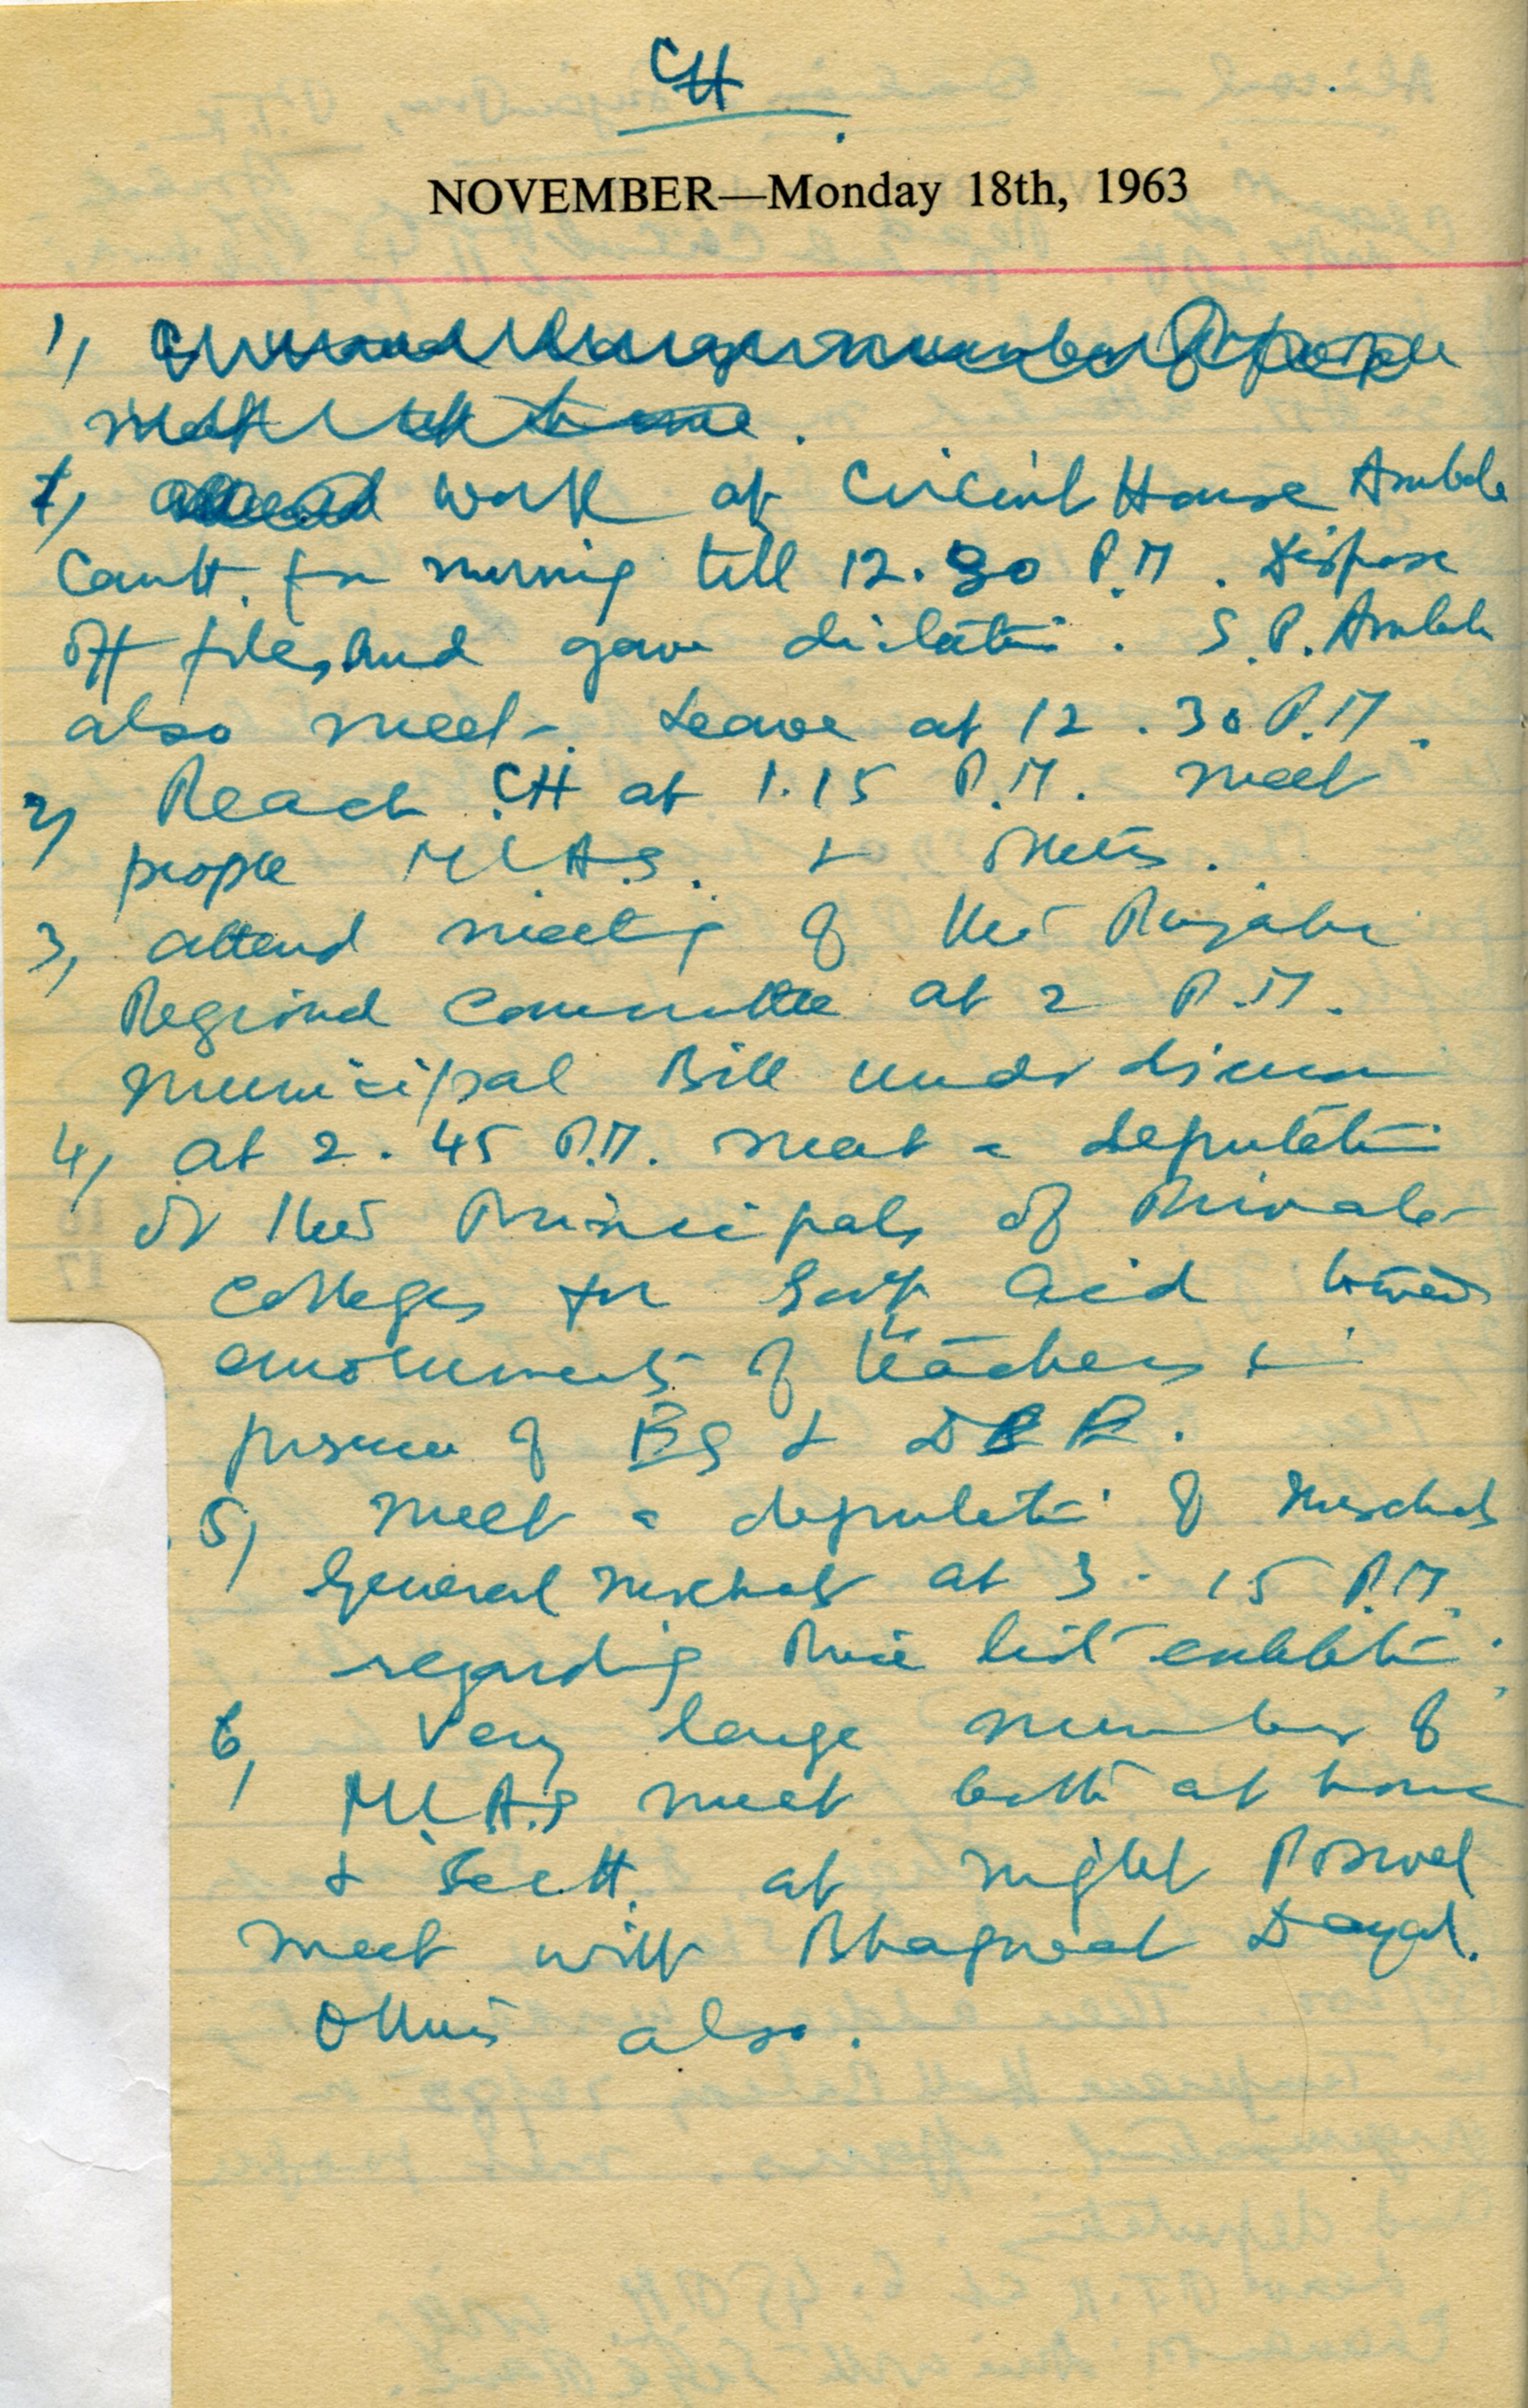 CH
NOVEMBER—Monday 18th, 1963
1,
1, work at Circuit House Ambala
Cantt. for morning till 12.30 P.M. Dispose
off files, and gave dictation. S.P. Ambala
also meet. Leave at 12.30 P.M.
2, Reach CH at 1.15 P.M. meet
people M.L.A.S. & others.
3, attend meeting of the Punjabi
Regional Committee at 2 P.M.
Municipal Bill under discussion
4, at 2.45 P.M. meet a deputation
of the Principals of Private
Colleges for Govt aid towards
emoluments of teachers in
presence of ES &
5, meet a deputation of
General Merchants at 3.15 P.M.
regarding Price list exhibition.
6, Very large number of
M.L.A.s meet both at home
& Sectt. at night
meet with Bhagwat Dayal.
Others also.